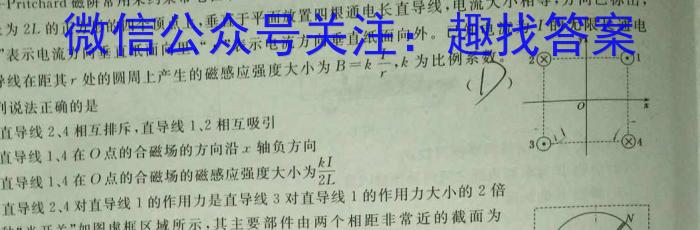 -Pritchard 磁阱常用来约束带
微信公众号关注：趣找答案
长为 2L 的正 垂直于平面放置四根通电长直导线,电流大小相等,方向已标出,
"表示电流方向垂直纸面向 表示电流方向垂直纸面向外。
导线在距其 r 处的圆周上产生的磁感应强度大小为 B=k I/r ,k 为比例系数。
列说法正确的是 (D)
直导线 2、4 相互排斥,直导线 1、2 相互吸引
直导线 1、4 在 O 点的合磁场的方向沿 x 轴负方向
直导线 1、4 在 O 点的合磁场的磁感应强度大小为 kI/2L
直导线 2、4 对直导线 1 的作用力是直导线 3 对直导线 1 的作用力大小的 2 倍
光开关"如图虚框区域所示,其主要部件由两个相距非常近的截面为
2 1
O x
3 4
N